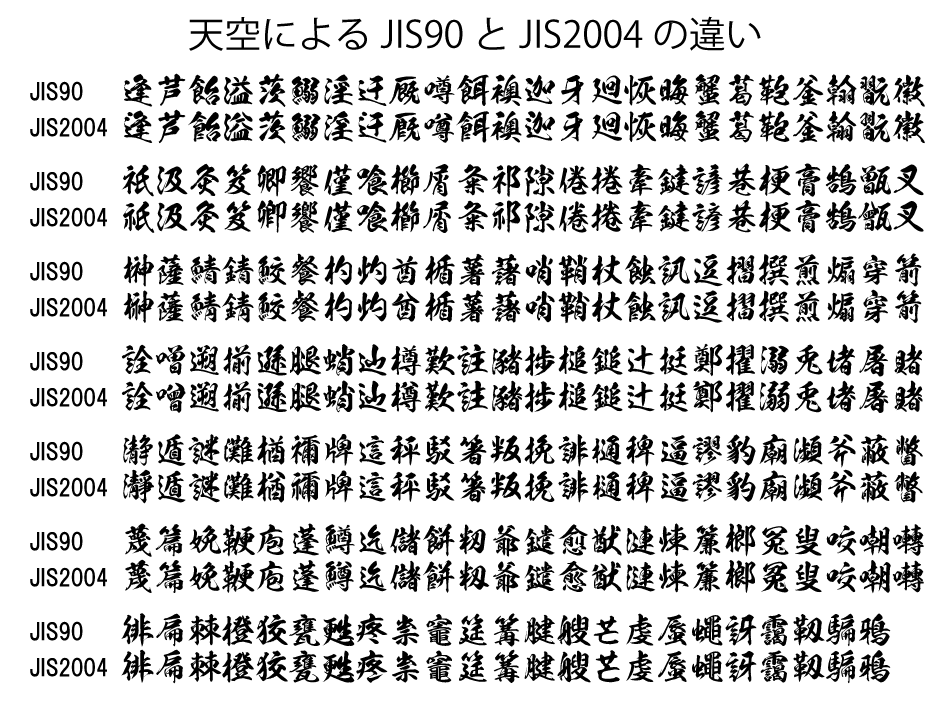 天空による JIS90 と JIS2004 の違い
JIS90 逢芦飴溢茨鰯淫迂厩噂餌襖迦牙廻恢晦蟹葛鞄釜翰翫徽
JIS2004 逢芦飴溢茨鰯淫迂厩噂餌襖迦牙廻恢晦蟹葛鞄釜翰翫徽
JIS90 祇汲灸笈卿饗僅喰櫛屑粂祁隙倦捲牽鍵諺巷梗膏鵠甑叉
JIS2004 祇汲灸笈卿饗僅喰櫛屑粂祁隙倦捲牽鍵諺巷梗膏鵠甑叉
JIS90 榊薩鯖錆鮫餐杓灼酋楯薯藷哨鞘杖蝕訊逗摺撰煎煽穿箭
JIS2004 榊薩鯖錆鮫餐杓灼酋楯薯藷哨鞘杖蝕訊逗摺撰煎煽穿箭
JIS90 詮噌遡揃遜腿蛸辿樽歎註瀦捗槌鎚辻挺鄭擢溺兎堵屠賭
JIS2004 詮噌遡揃遜腿蛸辿樽歎註瀦捗槌鎚辻挺鄭擢溺兎堵屠賭
JIS90 瀞遁謎灘楢禰牌這秤駁箸叛挽誹樋稗逼謬豹廟瀕斧蔽瞥
JIS2004 瀞遁謎灘楢禰牌這秤駁箸叛挽誹樋稗逼謬豹廟瀕斧蔽瞥
JIS90 蔑篇娩鞭庖蓬鱒迄儲餅籾爺鑓愈猷漣煉簾榔冤叟咬嘲囀
JIS2004 蔑篇娩鞭庖蓬鱒迄儲餅籾爺鑓愈猷漣煉簾榔冤叟咬嘲囀
JIS90 徘扁棘橙狡甕甦疼祟竈筵篝腱艘芒虔蜃蠅訝靄靱騙鴉
JIS2004 徘扁棘橙狡甕甦疼祟竈筵篝腱艘芒虔蜃蠅訝靄靱騙鴉